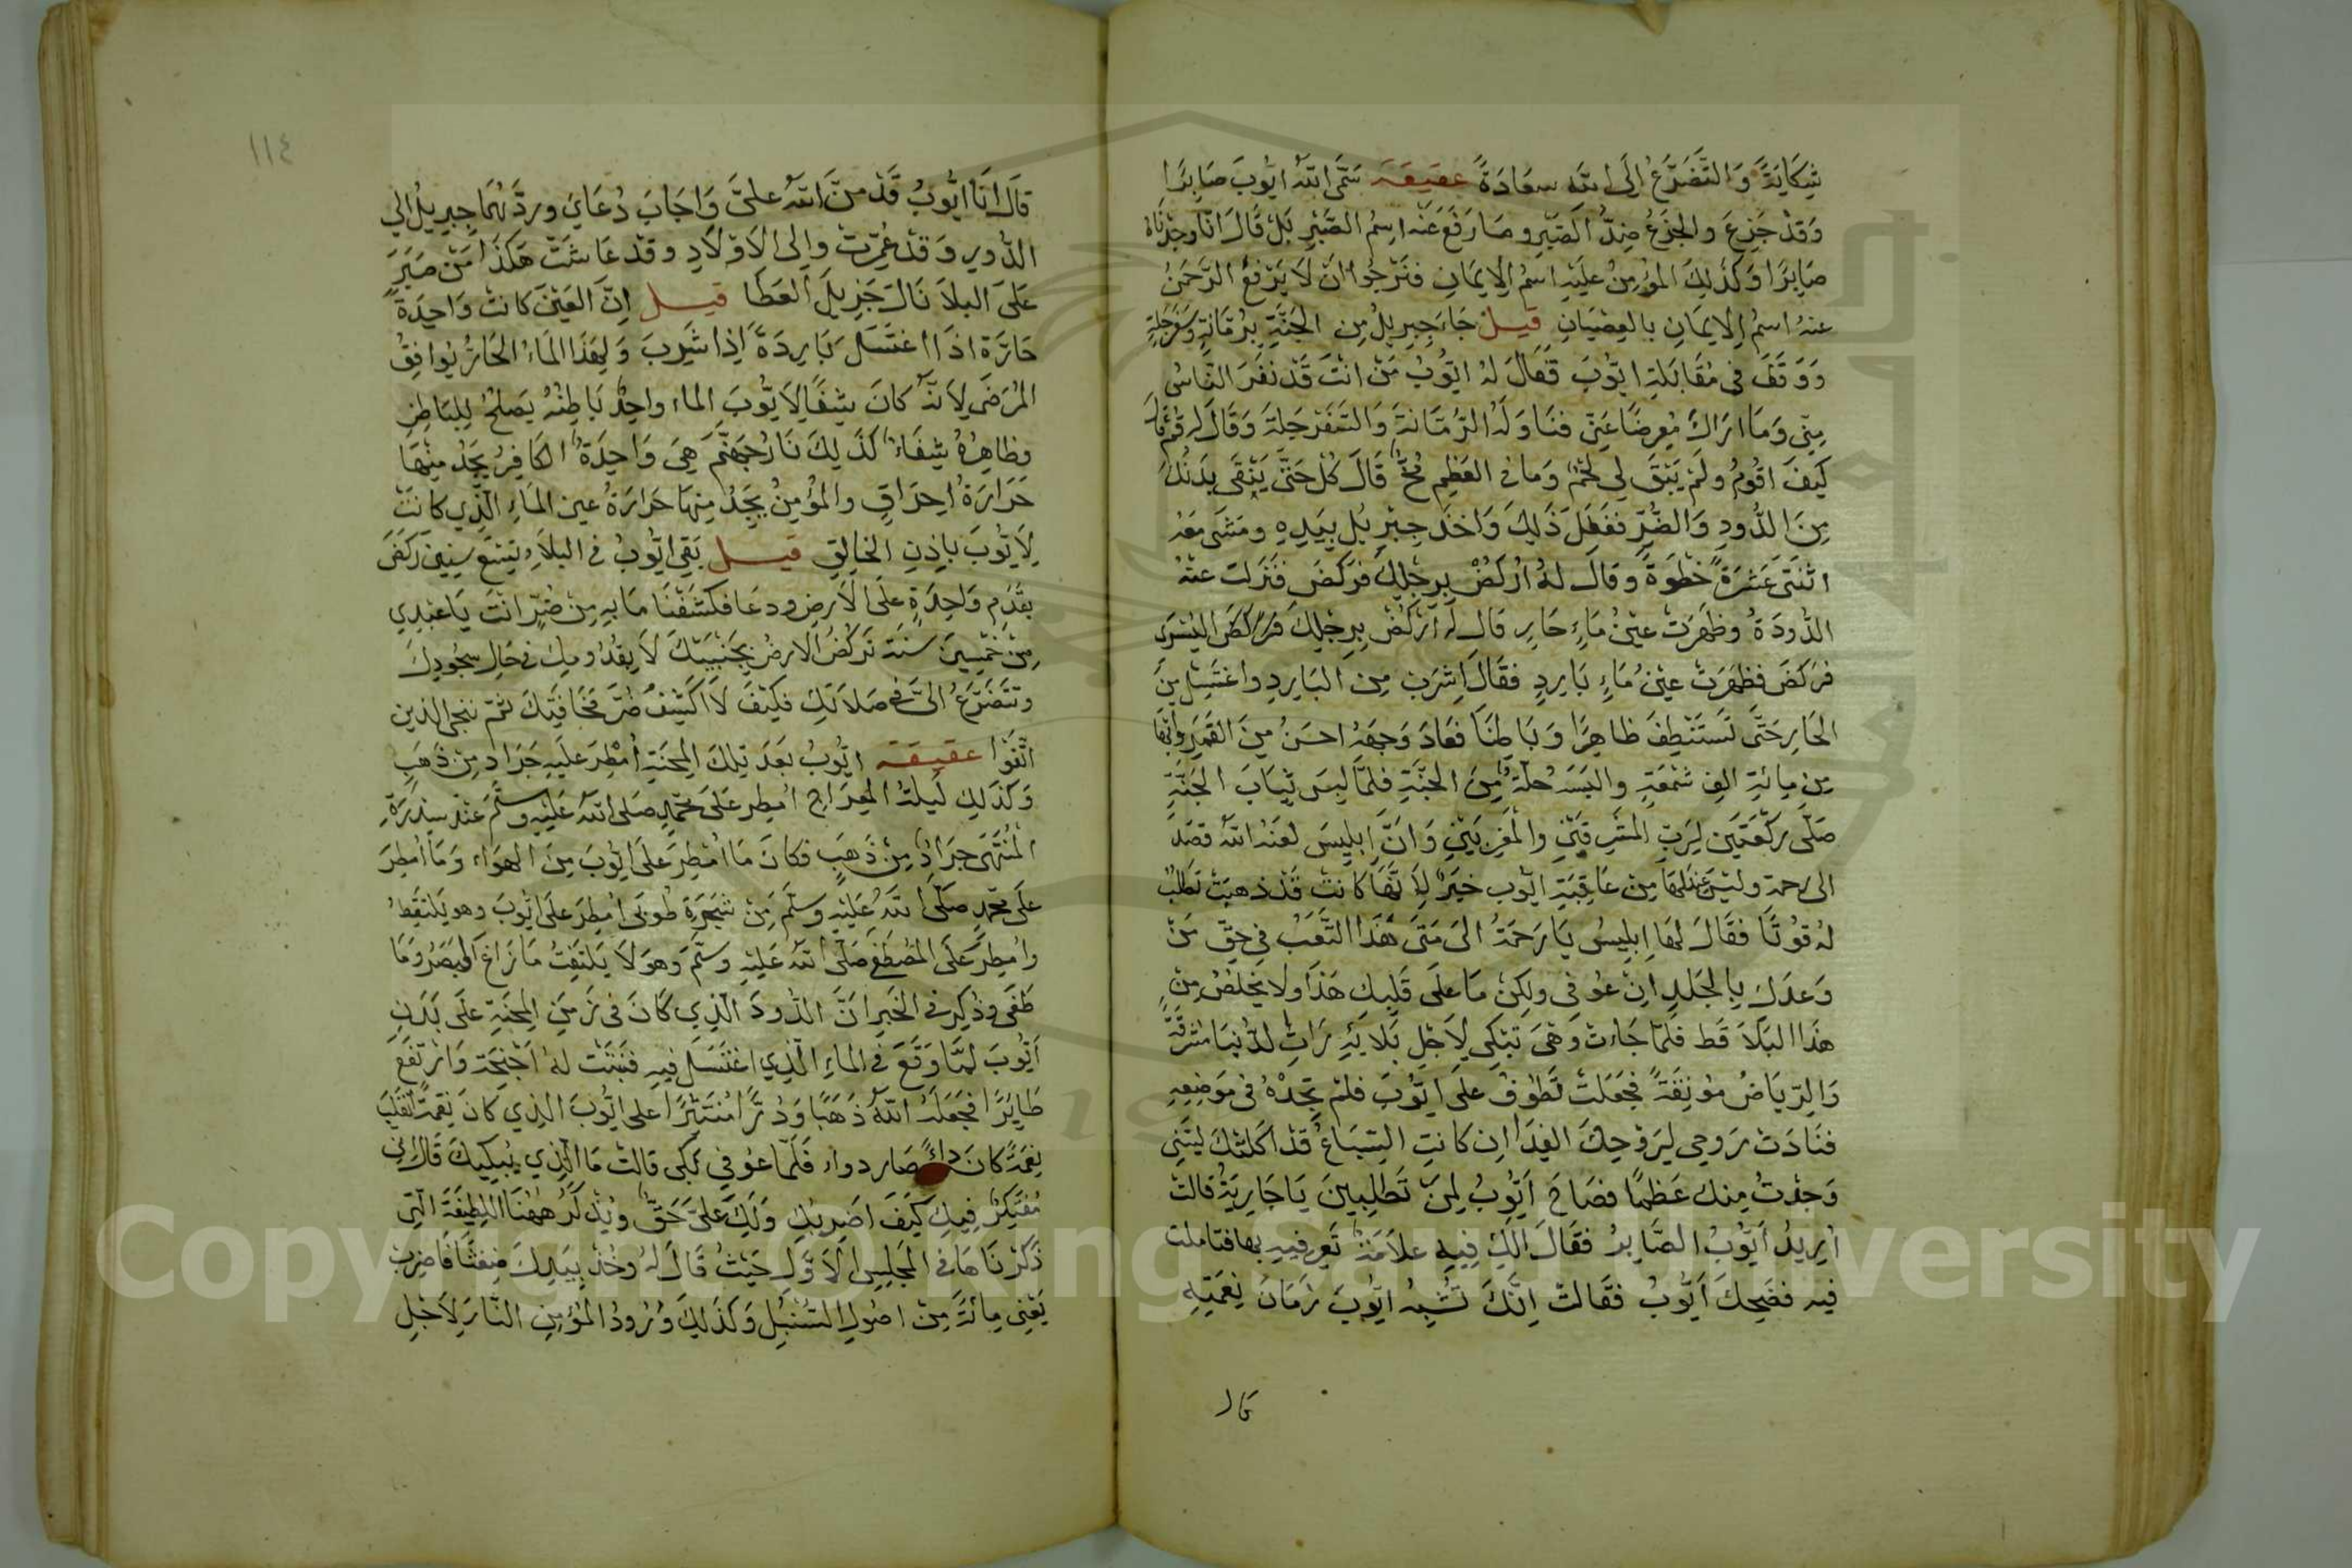 شِكَايَةً وَالتَّضَرُّعُ اِلَى اللهِ سعَادَةً عقيقة سَمَّى اللهُ ايّوبَ صَابِرًا
وَقَدْ جَزِعَ والجَزَعُ ضِدُّ الصَّبْرِ وما رَفَعَ عَنْه اسمُ الصَّبْرِ بَلْ قَالَ انّا وجَدْنَاهُ
صَابِرًا وَكَذَلِكَ المؤمِنُ عليْهِ اسمُ الاِيمَانِ فنَرْجُوا انْ لاَ يَرْفعُ الرَّحمَنُ
عنهُ اسمُ الايمَانِ بالعِصْيَانِ قيل جَاءَ جِبرِيلُ مِن الجَنَّةِ برُمَّانَةٍ وسَفَرْجَلةٍ
وَوَقَفَ فِى مُقَابَلَةِ ايّوبَ فَقَالَ لهُ ايّوبُ مَنْ انتَ قَدْ نفَرَ النَّاسُ
مِنِّى وَمَا ارَاكَ مُعرِضًا عَنِّى فنَاوَلَهُ الرُّمَّانةَ وَالسَّفَرْجَلةَ وَقَالَ لَهُ قُمْ قَالَ
كَيفَ اقُومُ ولَمْ يَبْقَ لى لَحْمٌ وَما فى العَظمِ مُخٌّ قَالَ كُلْ حَتَّى يَنْقَى بَدَنُكَ
مِنَ الدُّودِ وَالضُّرِّ ففَعَلَ ذَلِكَ وَاخَذَ جِبْرِيلُ بيَدِهِ ومَشَى مَعَهُ
اثْنَتَى عَشْرَةَ خَطْوَةً وقالَ لهُ ارْكُضْ برِجْلِكَ فرَكَضَ فنَزلت عنْهُ
الدُّودَةُ وظهَرَتْ عينُ مَاءٍ حَارٍ قال لَهُ ارْكُضْ بِرِجْلِكَ فَرَكَضَ اليُسْرَى
فرَكَضَ فظهَرَتْ عينُ مَاءٍ بَارِدٍ فقَالَ اِشرَبْ مِنَ البَارِدِ واغتَسِلْ مِنَ
الحَارِ حَتَّى تَسْتَنْظِفَ ظاهِرًا وَبَاطِنًا فعَادَ وَجهَهُ احسَنُ مِنَ القَمَرِ وابْهَا
مِن مِائةِ الف شمْعَةٍ والبَسَهُ حُلّةً مِنَ الجنَّةِ فلمَّا لبِسَ ثِيَابَ الجَنَّةِ
صَلَّى ركْعَتَيْن لِرَبِّ المشرِقَيْنِ والمغْرِبَيْنِ وَانَّ اِبلِيسَ لعَنهُ اللهُ قصَد
الى رحمة وليسَ عِنْدَهَا مِنْ عَافِيَةِ ايّوب خبَرٌ لأنّهَا كانتْ قَدْ ذهبَتْ تَطْلُبُ
لهُ قُوتًا فقَالَ لهَا اِبليسُ يَا رَحمَةُ الى مَتَى هَذا التَّعَبُ فى حِقّ مَنْ
وَعدَكِ بالجَلدِ انْ عُوفِى ولكِنْ مَا عَلَى قَلبِكِ هَذَا ولا يَخلُصُ مِنْ
هَذا البَلاَ قَط فلمّا جَاءت وَهْىَ تَبْكِى لاَجْلِ بَلاَيهِ رَاتِ الدُّنيَا مُشرِقَةً
وَالرِّيَاضُ مُونِقَةً فجَعَلَتْ تَطُوفُ علَى ايّوبَ فلمْ تجِدْهُ فى مَوضِعِهِ
فنَادَتْ رَوحِى لِرَوْحِكَ الفِدَا اِن كانتِ السِّبَاعُ قَدْ اكلتْكَ ليْتَنِى
وَجَدْتُ مِنك عَظمًا فصَاحَ اَيّوبُ لِمَنْ تَطْلُبِينَ يَا جَارِيَةُ قالتْ
اُرِيدُ اَيّوبُ الصَّابِرُ فقَالَ الَكِ فِيهِ علاَمَةٌ تَعرِفيهِ بها فتاملت
فيه فضَحِكَ اَيّوبُ فقَالتْ اِنَّكَ تُشْبِهُ ايّوبَ زَمَانَ نِعْمَتِهِ
قال
١١٤
قَالَ اَنَا ايُّوبُ قَدْ مَنَّ اللهُ علىَّ وَاجَابَ دُعَايَ وردَّهُمَا جِبرِيلُ الى
الدُّورِ وَقَدْ عُمِّرَتْ والى الاَوْلاَدِ وقدْ عَاشَتْ هَكَذَا مَنْ صَبَرَ
عَلَى البلاَ نَالَ جَزِيلَ العَطَا قيل اِنَّ العَيْنَ كانتْ وَاحِدَةً
حَارَّة اذَا اغتَسَلَ بَارِدَةً اِذا شَرِبَ وَلِهَذَا المَاءُ الحَارُّ يُوَافِقُ
المَرْضَى لاَنَّهُ كانَ شِفًا لاَيُّوبَ الماء واحِدٌ بَاطِنُهُ يَصلحُ لِلبَاطِنِ
وظاهِرُهُ شِفَاءٌ كَذَلِكَ نَارُ جهَنَّمَ هِىَ وَاحِدَةٌ الكافِرُ يجَدُ مِنْهَا
حَرَارَةُ احِرَاقٍ والمؤمِنُ يجِدُ مِنهَا حَرَارَةُ عين المَاءِ الَّذِي كانتْ
لاَيُّوبَ باِذنِ الخالِقِ قيل بَقِىَ ايّوبُ فى البلاَءِ تِسْعَ سِنِينَ رَكَضَ
بقَدَمٍ وَاحِدَةٍ عَلَى الاَرضِ ودعَا فكشَفْنَا مَا بِهِ مِنْ ضُرٍّ انْتَ يَا عَبْدِي
مِنْ خَمْسِينَ سنَة تَركُضُ الارضُ بجَنْبَيْكَ لاَ بقَدُومِكَ فى حَالِ سجُودِكَ
وتتَضَرَّعُ الىَّ فى صَلاَتِكَ فكَيْفَ لاَ اكْشِفُ ضُرَّ مَخَافَتِكَ ثمّ ننجى الذين
اتَّقَوْا عقيقة ايّوبُ بَعْدَ تِلكَ المِحنَةِ اُمْطِرَ عليَهِ جَرَاد مِنْ ذَهَبِ
وَكَذَلِكَ لَيلَةُ المِعرَاجِ امْطِر عَلَى محمّدٍ صَلى اللهُ عَلَيْهِ وسلّمَ عِنْدَ سِدْرَةِ
المُنتَهَى جَرَادٌ مِنْ ذَهَبٍ فكانَ مَا امْطِرَ عَلَى ايّوبَ مِنَ الهوَاء وَمَا امْطِرَ
عَلَى محمّدٍ صَلَّى اللهُ عَلَيْهِ وسَلَّمَ مِنْ شجَرَةِ طُوبَى امْطِرَ عَلَى ايّوبَ وهو يَلتقِطُ
وامْطِرَ عَلَى المُصْطَفَى صَلّى اللهُ عَليْهِ وسلّمَ وَهوَ لاَ يَلتَفِتُ مَا زَاغَ البَصَرُ وَمَا
طَغَى وذُكِر فى الخَبَرِ انَّ الدُّودَ الَّذِي كَانَ فى زَمَنِ المِحنَةِ عَلَى بَدَنِ
اَيّوبَ لمّا وَقَعَ فى الماءِ الَّذِي اغتَسَلَ فيهِ فنَبَتَت لهُ اَجْنِحَة وَارْتفَعَ
طَايرًا فجَعَلَهُ اللهُ ذَهَبًا وَدُرًّا مُنتَثِرًا عَلى ايّوبَ الذِي كانَ نِقمَةً انْقَلَبَ
نِعمَةً كانَ دَاءً صَار دواء فلَمّا عُوفِى بَكَى قالتْ مَا الَّذِي يُبكِيكَ قَالَ انّى
مُفَكِّرٌ فِيكِ كَيْفَ اَضْرِبُكِ وَلَكِ عَلَىَّ حَقٌّ ويُذكَرُ هَهُنَا اللطِيفَةُ الَّتِى
ذَكَرْنَاهَا فى المجَلسِ الاَوَّلِ حَيْثُ قَالَ لَهُ وخُذْ بِيَدِكَ ضِغْثًا فَاضْرِبْ
يَعْنِى مِائةً مِنْ اصُولِ السُّنْبُلِ وَكَذَلِكَ وُرُودُ المؤمِنِ النَّارَ لاَجْلِ
Copyright © King Saud University